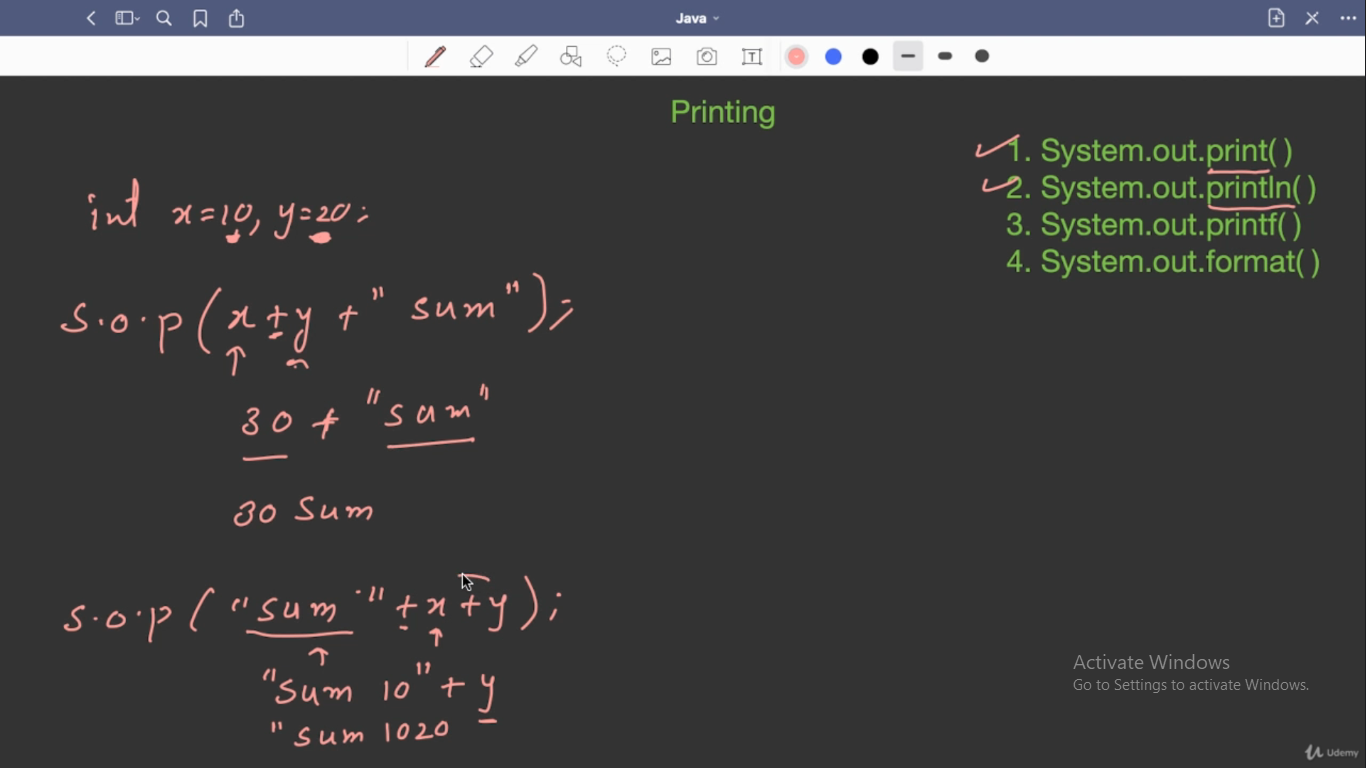 Java
Printing
1. System.out.print( )
2. System.out.println( )
3. System.out.printf( )
4. System.out.format( )
int x=10, y=20;
S.o.p(x+y+" sum");
30 + "sum"
30 Sum
S.o.p("sum "+x+y);
"Sum 10"+y
"sum 1020
Activate Windows
Go to Settings to activate Windows.
Udemy